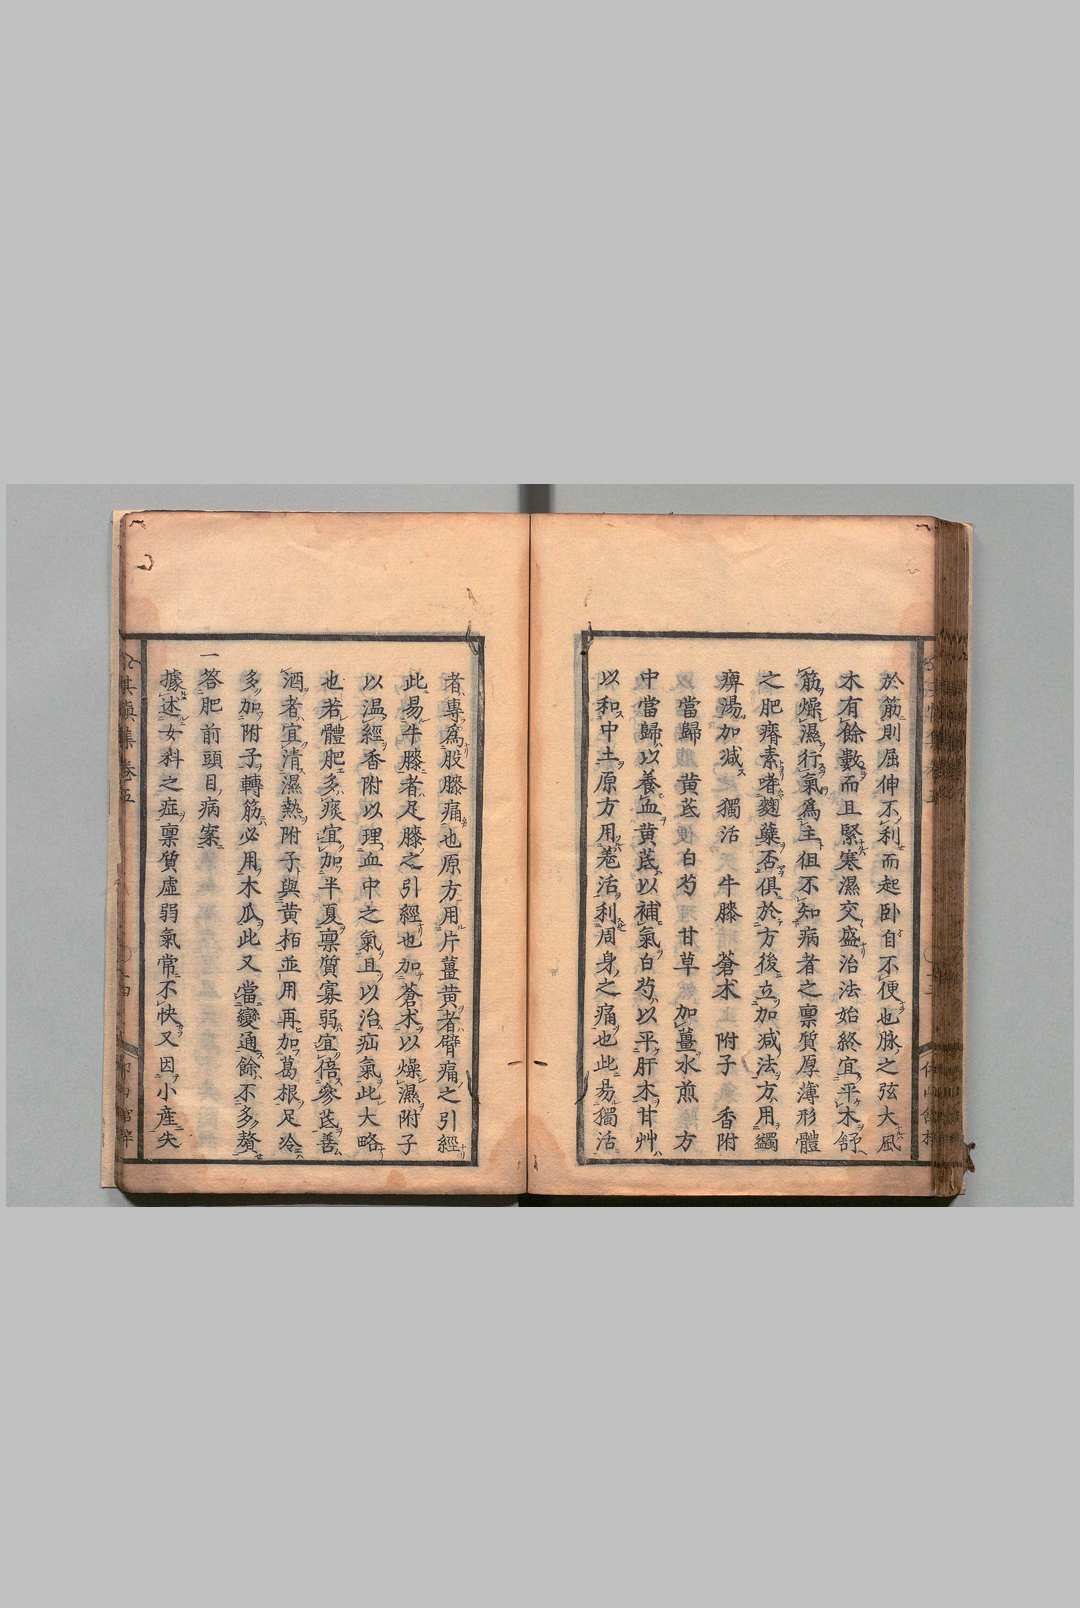 於筋則屈伸不利而起卧自不便也脉之弦大風
木有餘數而且緊寒濕交盛治法始終宜平木舒
筋燥濕行氣爲主但不知病者之稟質厚薄形體
之肥瘠素嗜麯蘖否俱於方後立加減法方用蠲
痹湯加減
獨活 牛膝 蒼术 附子 香附
當歸 黄芪 白芍 甘草 加薑水煎 方
中當歸以養血黄芪以補氣白芍以平肝木甘艸
以和中土原方用羗活利周身之痛也此易獨活
者專爲股膝痛也原方用片薑黄者臂痛之引經
此易牛膝者足膝之引經也加蒼术以燥濕附子
以温經香附以理血中之氣且以治疝氣此大略
也若體肥多痰宜加半夏稟質寡弱宜倍參芪善
酒者宜清濕熱附子與黄栢並用再加葛根足冷
多加附子轉筋必用木瓜此又當變通餘不多贅
一答肥前頭目病案
據述女科之症稟質虛弱氣常不快又因小産失